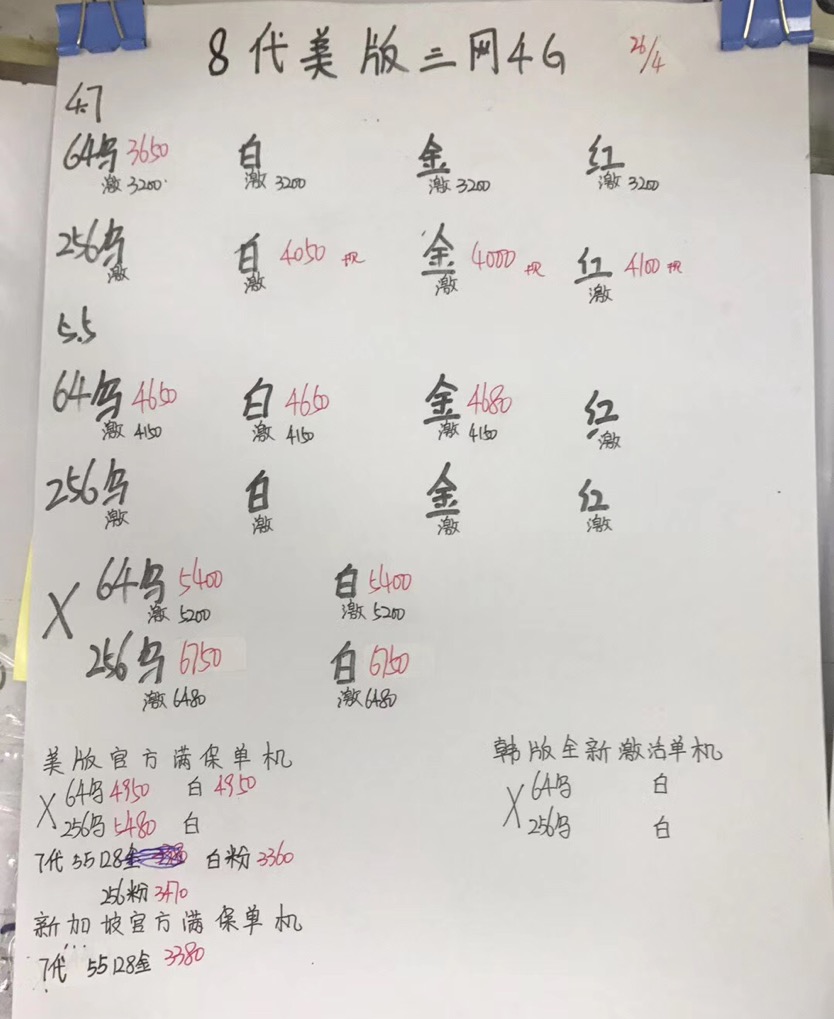 8代美版三网4G 26/4
4.7
64乌 3650 白 金 红
激 3200 激 3200 激 3200 激 3200
256乌 白 4050 现 金 4000 现 红 4100 现
激 激 激 激
5.5
64乌 4650 白 4650 金 4680 红
激 4150 激 4150 激 4150 激
256乌 白 金 红
激 激 激 激
X 64乌 5400 白 5400
激 5200 激 5200
256乌 6750 白 6750
激 6480 激 6480
美版官方满保单机
X 64乌 4950 白 4950
256乌 5480 白
7代 55 128金 白粉 3360
256粉 3470
新加坡官方满保单机
7代 55 128金 3380
韩版全新激活单机
X 64乌 白
256乌 白